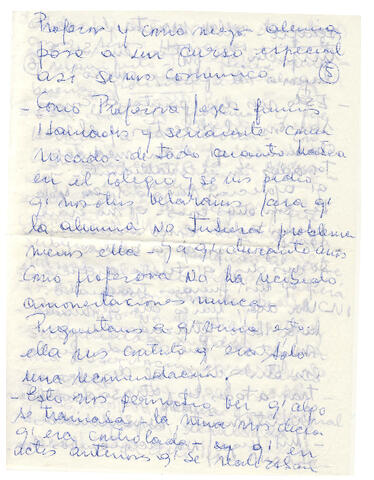 Profesora y como nuego alumna
paso a un curso especial
así se nos comunica (5)
- Como Profesora Jefe - fuimos
llamados y seriamente comu
nicados de todo cuanto había
en el colegio y se nos pidió
q' nosotros velaramos para q'
la alumna no tuviera problemas
menos ella - ya q' durante años
como profesora no ha recibido
amonestaciones nunca -
Preguntamos a q' venía esto y
ella nos contestó q' era solo
una recomendación.
- Esto nos permitió ver q' algo
se tramaba - la nina nos decía
q' era controlada - q' en
actos anteriores q' se realizaban